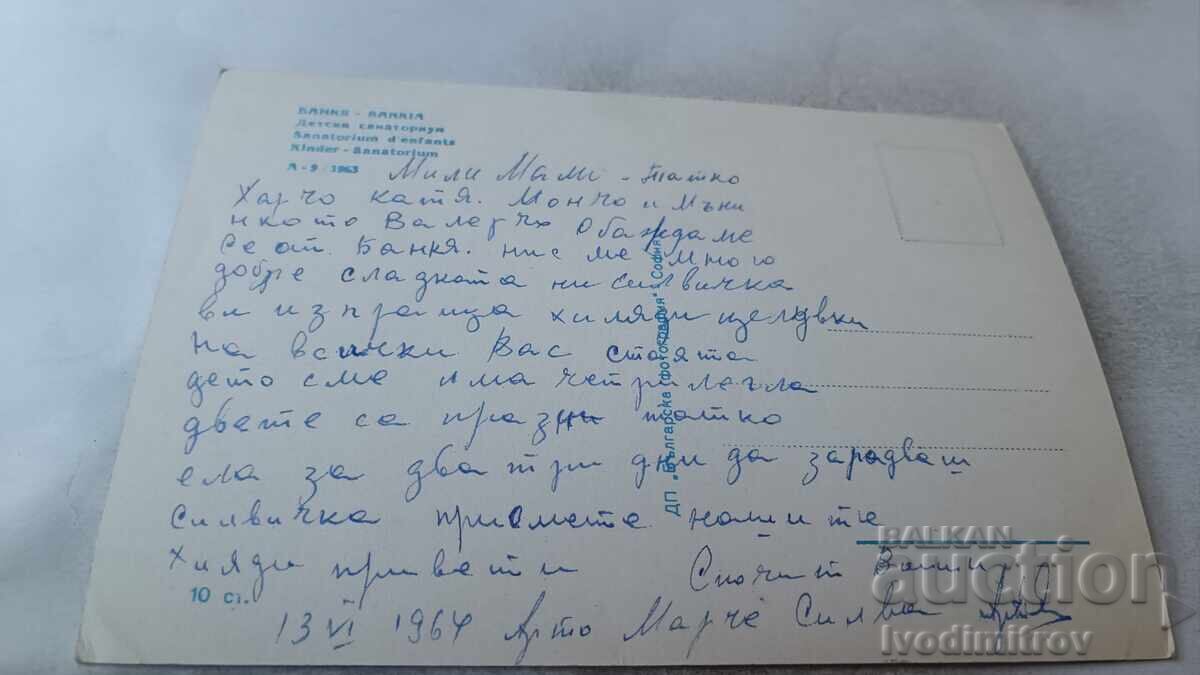 БАНКЯ - BANKIA
Детски санаториум
Sanatorium d'enfants
Kinder - Sanatorium
А - 9 / 1963
Мили Мами - татко
Харчо катя. Мончо и мъни
нкото Валерчо Обаждаме
Се от. Банкя. ние ме много
добре сладката ни Силвичка
ви изпраща хиляди целувки
На всички Вас стаята
дето сме има четрилегла
двете са празни татко
ела за два три дни да зарадваш
Силвичка приемете нашите
хиляди привети
13 VI 1964 Арто Марче Силва
10 ст.
ДП „Българска фотография“ - София
BALKAN
auction
Ivodimitrov